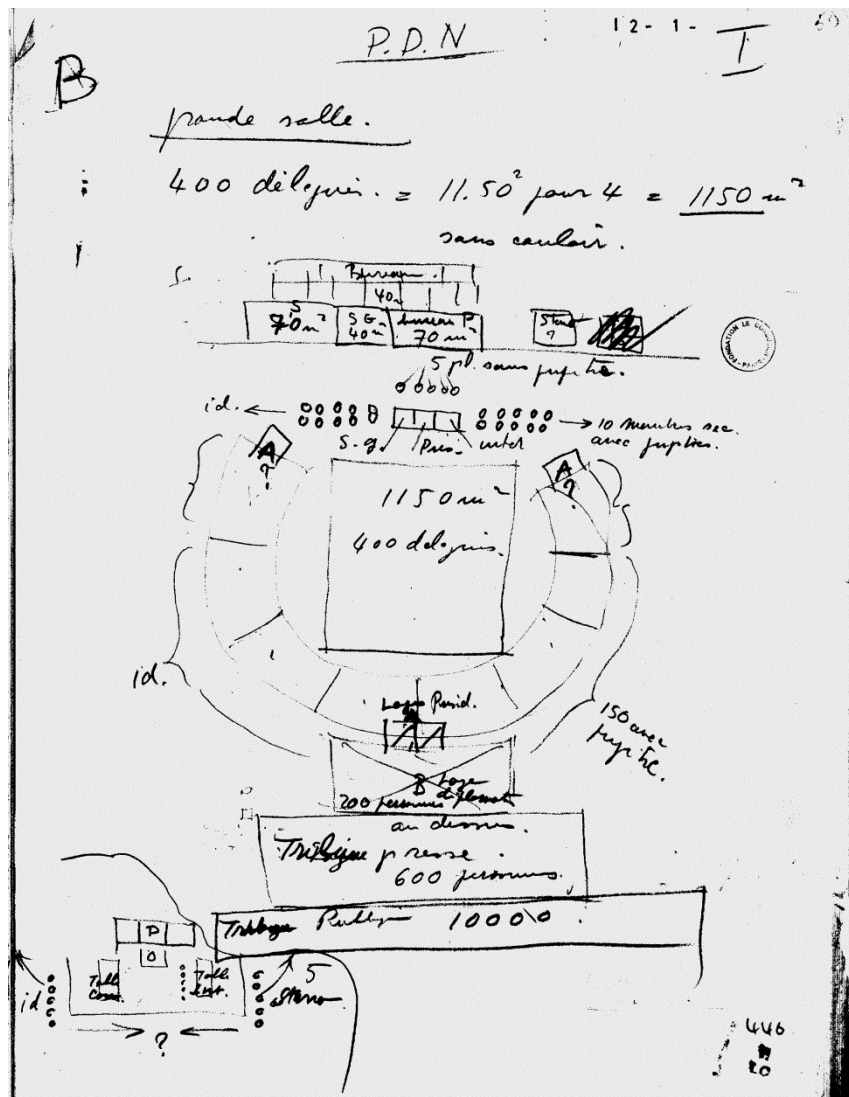 P.D.N
12-1-
I
B
grande salle.
400 délégués. = 11.50² pour 4 = 1150 m²
sans couloir.
S.
Bureau
40m
S
70m²
S G.
40m
bureau P.
70 m²
?
FONDATION LE CORBUSIER
5 pl. sans pupitre.
id.
10 membres sec.
avec pupitres.
S.g.
Prés.
inter
A
?
A
?
1150 m²
400 délégués.
id.
Loge Présid.
150 avec
pupitre.
B Loge
diplomat
200 personnes
au dessus.
Tribune presse.
600 personnes.
Tribune Publique 1000
P
O
Table
Table
id
5
Steno
?
446
20